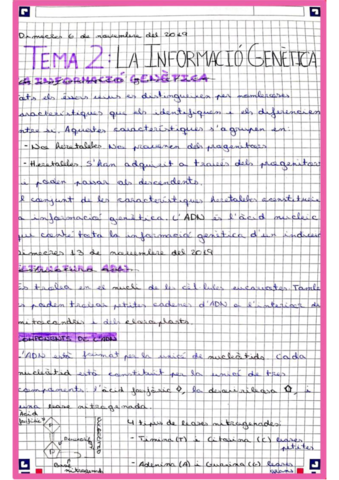 Dimecres 6 de novembre del 2019
TEMA 2: LA INFORMACIÓ GENÈTICA
LA INFORMACIÓ GENÈTICA
ots els éssers vius es distingueixen per nombroses
aracterístiques que els identifiquen i els diferencien
ntre si. Aquestes característiques s'agrupen en:
- No Heretables. No provenen dels progenitors
- Heretables. S'han adquirit a través dels progenitors
i poden passar als descendents.
l conjunt de les característiques heretables constitueix
a informació genètica. L'ADN és l'àcid nucleic
que conté tota la informació genètica d'un individu
Dimecres 13 de novembre del 2019
ESTRUCTURA ADN
Es troba en el nucli de les cèl·lules eucariotes. També
s poden trobar petites cadenes d'ADN a l'interior de
mitocondris i dels cloroplasts.
COMPONENTS DE L'ADN
L'ADN està format per la unió de nucleòtids. Cada
nucleòtid està constituït per la unió de tres
components: l'àcid fosfòric, la desoxiribosa, i
una base nitrogenada.
Àcid
fosfòric
P
P
Base
nitrogenada
4 tipus de bases nitrogenades:
- Timina (T) i Citosina (C) bases
petites
- Adenina (A) i Guanina (G) bases